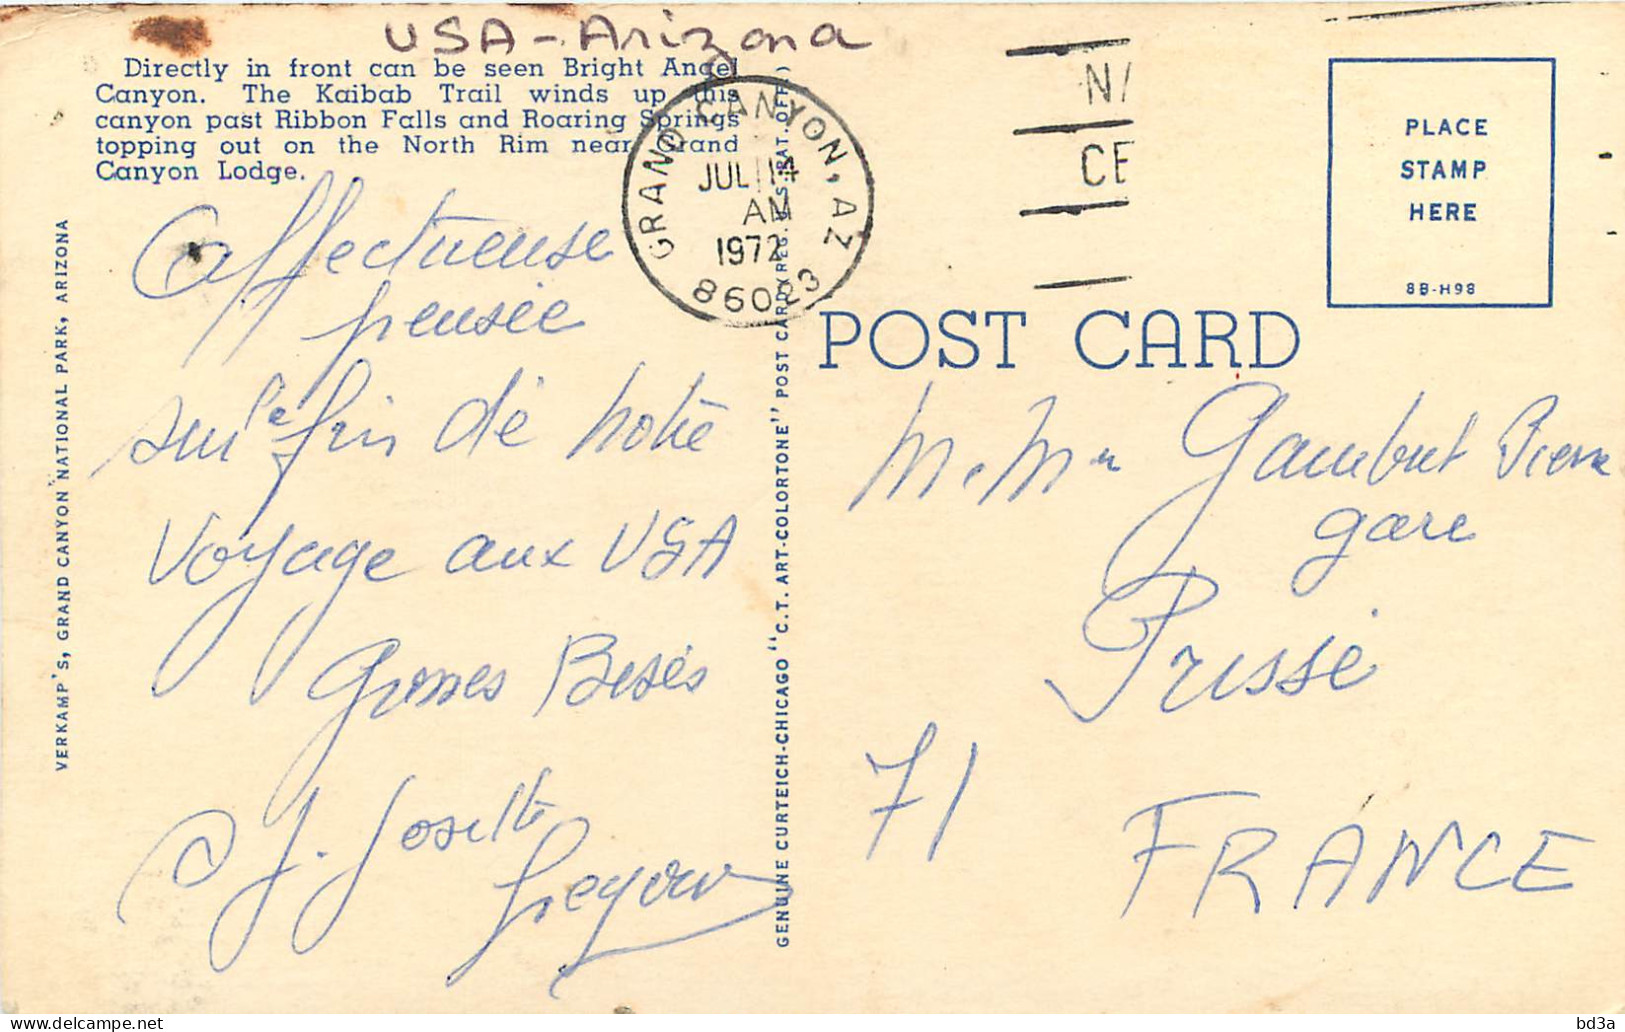 USA - Arizona
Directly in front can be seen Bright Angel
Canyon. The Kaibab Trail winds up this
canyon past Ribbon Falls and Roaring Springs
topping out on the North Rim near Grand
Canyon Lodge.
GRAND CANYON, AZ
JUL 14
AM
1972
86023
PLACE
STAMP
HERE
8B-H98
POST CARD
VERKAMP'S, GRAND CANYON NATIONAL PARK, ARIZONA
GENUINE CURTEICH-CHICAGO "C.T. ART-COLORTONE" POST CARD (REG. U.S. PAT. OFF.)
affectueuse
pensée
sur la fin de notre
voyage aux USA
Grosses Besés
Josette
M. Mme Gambut Pierre
gare
Prissé
71
FRANCE
bd3a